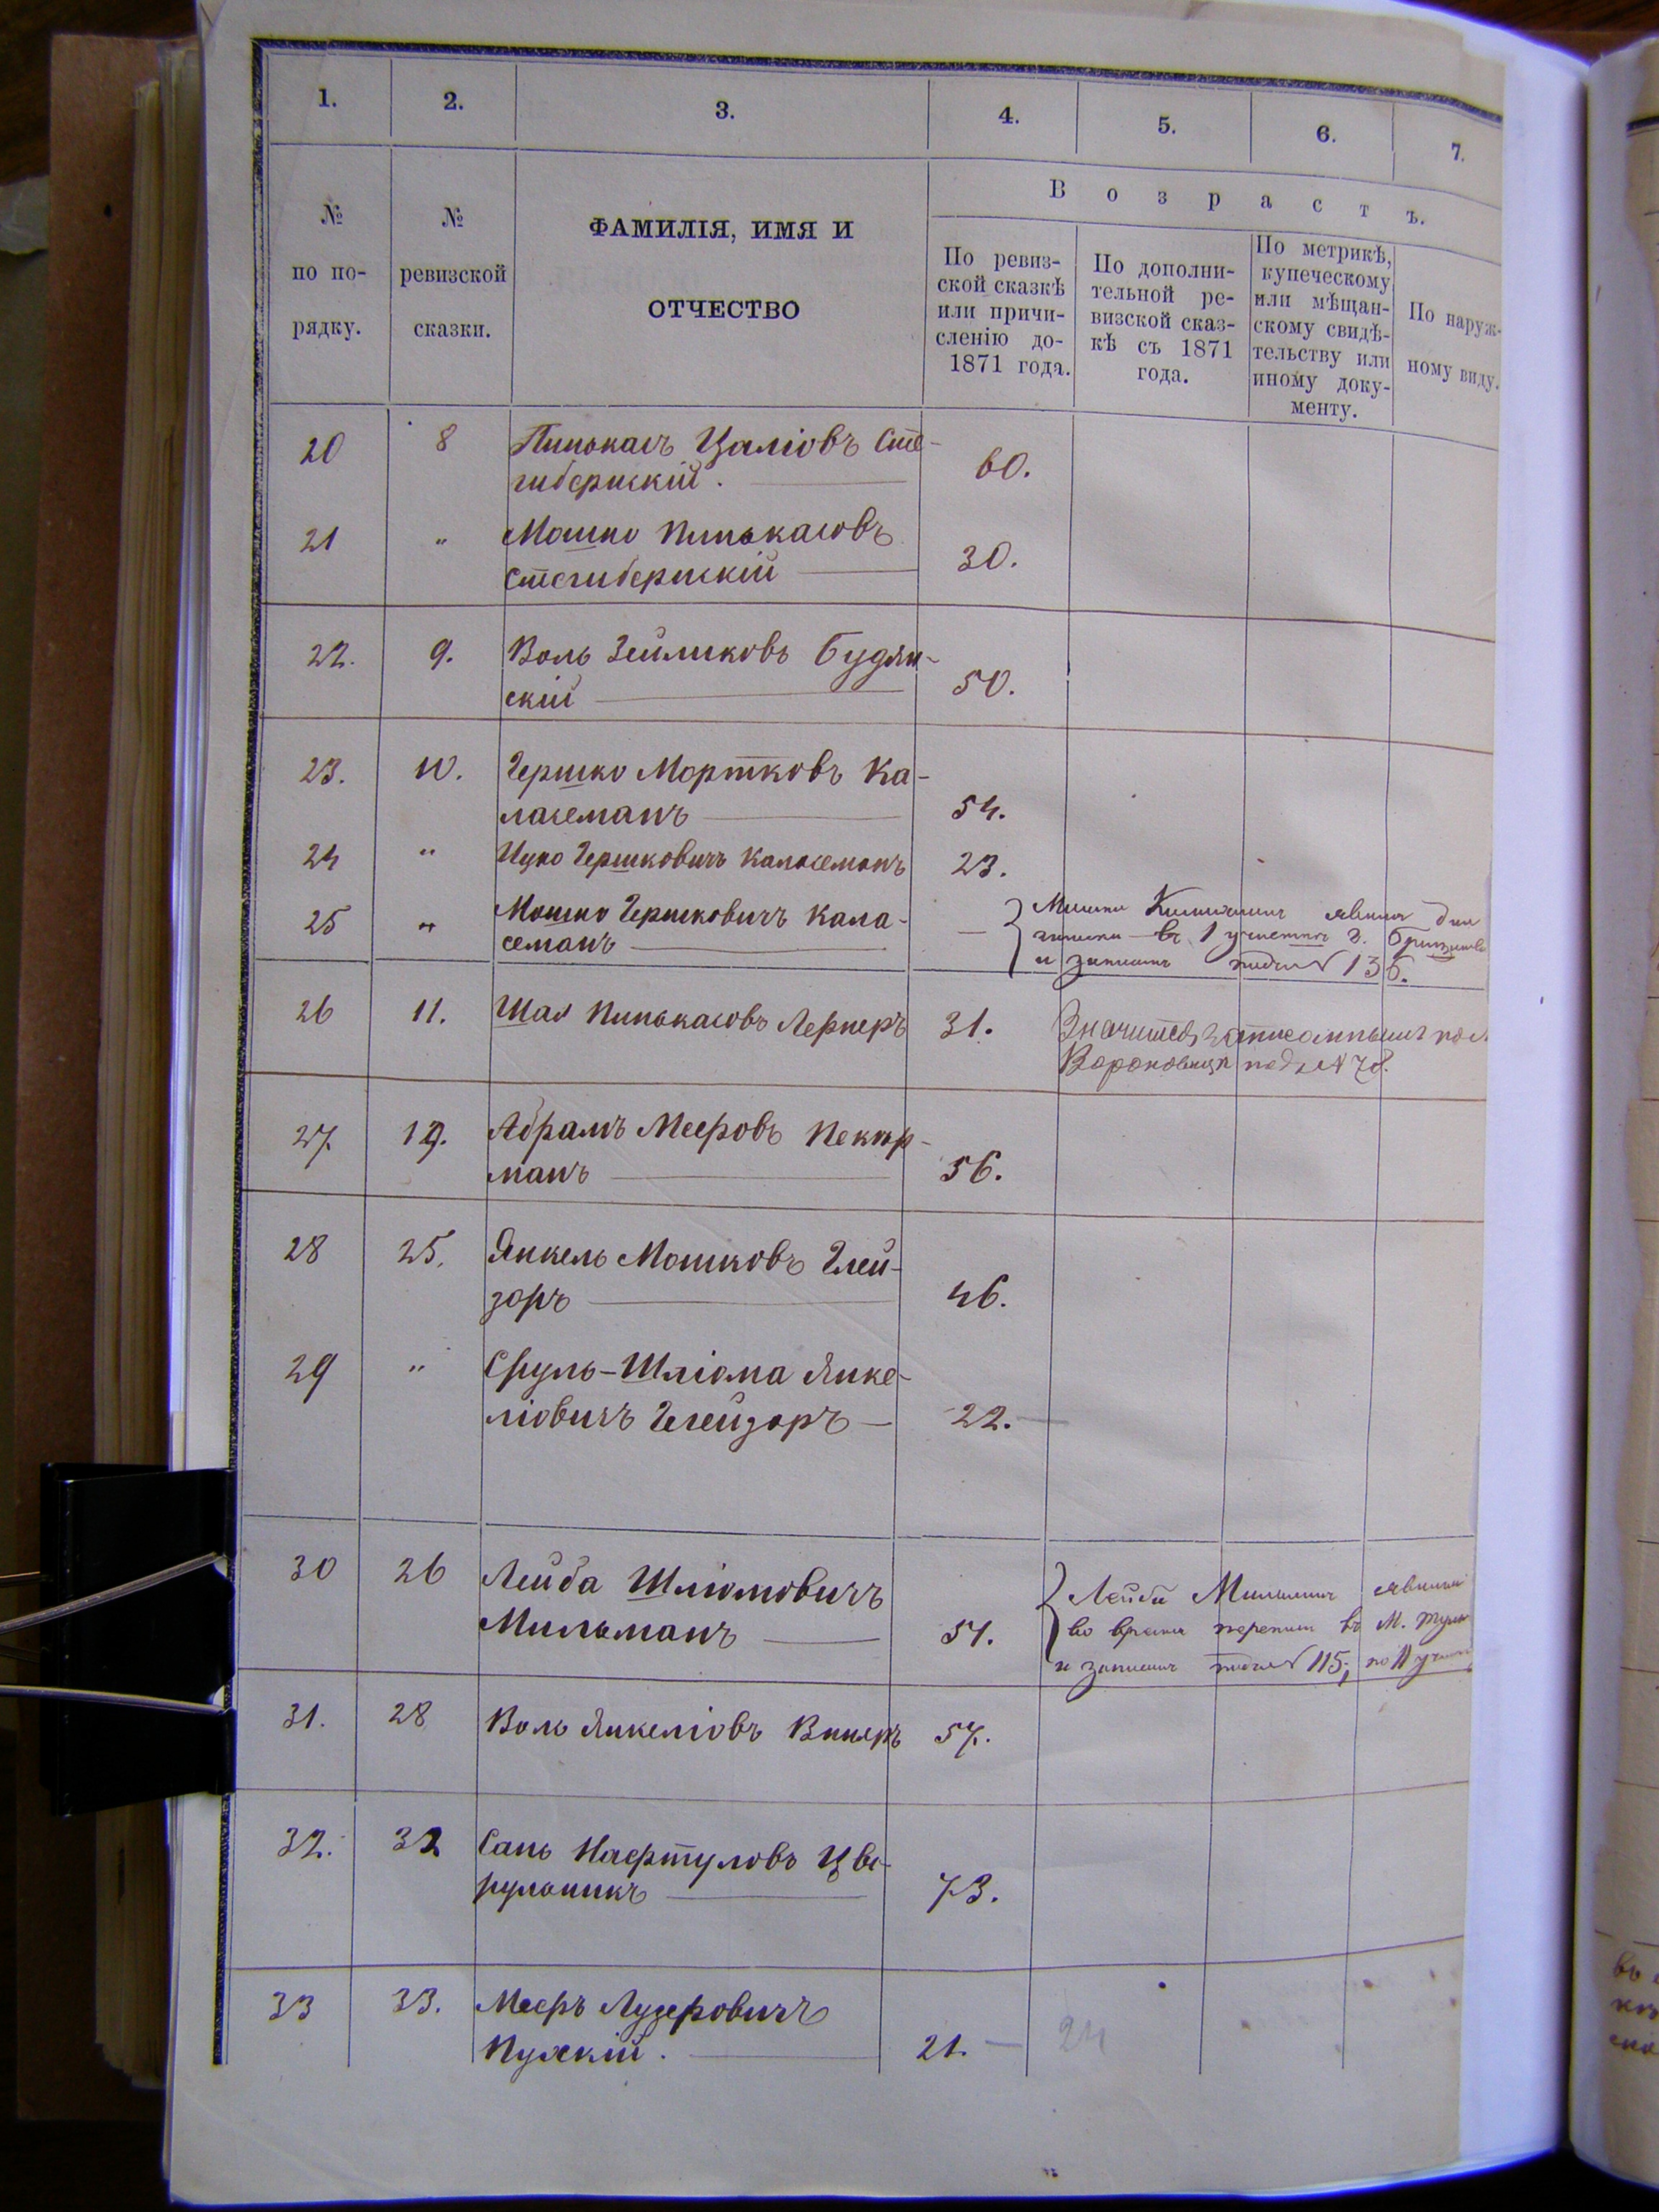 1. 2. 3. 4. 5. 6. 7.
№ по по-рядку.
№ ревизской сказки.
ФАМИЛІЯ, ИМЯ И
ОТЧЕСТВО
Возрастъ.
По ревиз-
ской сказкѣ
или причи-
сленію до-
1871 года.
По дополни-
тельной ре-
визской сказ-
кѣ съ 1871
года.
По метрикѣ,
купеческому
или мѣщан-
скому свидѣ-
тельству или
иному доку-
менту.
По наруж-
ному виду.
20 8 Пинькасъ Цаліовъ Сте-
гиберскій. 60.
21 " Мошко Пинькасовъ
Стегиберскій 30.
22. 9. Воль Зейликовъ Будян-
скій 50.
23. 10. Гершко Мортковъ Ка-
ласеманъ 54.
24 " Ицко Гершковичъ Каласеманъ 23.
25 " Мошко Гершковичъ Кала-
семанъ —
въ 1 участкѣ г.
и записанъ подъ № 136.
26 11. Шая Пинькасовъ Лернеръ 31. Значится записаннымъ по м.
Вороновица подъ № 78.
27. 19. Абрамъ Мееровъ Пеккер-
манъ 56.
28 25. Янкель Мошковъ Глей-
зоръ 46.
29 " Сруль-Шліома Янке-
ліовичъ Глейзоръ — 22.
30 26 Лейба Шліомовичъ
Мильманъ 51.
Лейба Мильманъ явился
во время переписи въ м.
и записанъ подъ № 115;
31. 28 Воль Янкеліовъ Винеръ 57.
32. 32 Сань Нафтуловъ Цве-
рульникъ 73.
33 33. Мееръ Лузеровичъ
Пулскій. 21. — 24